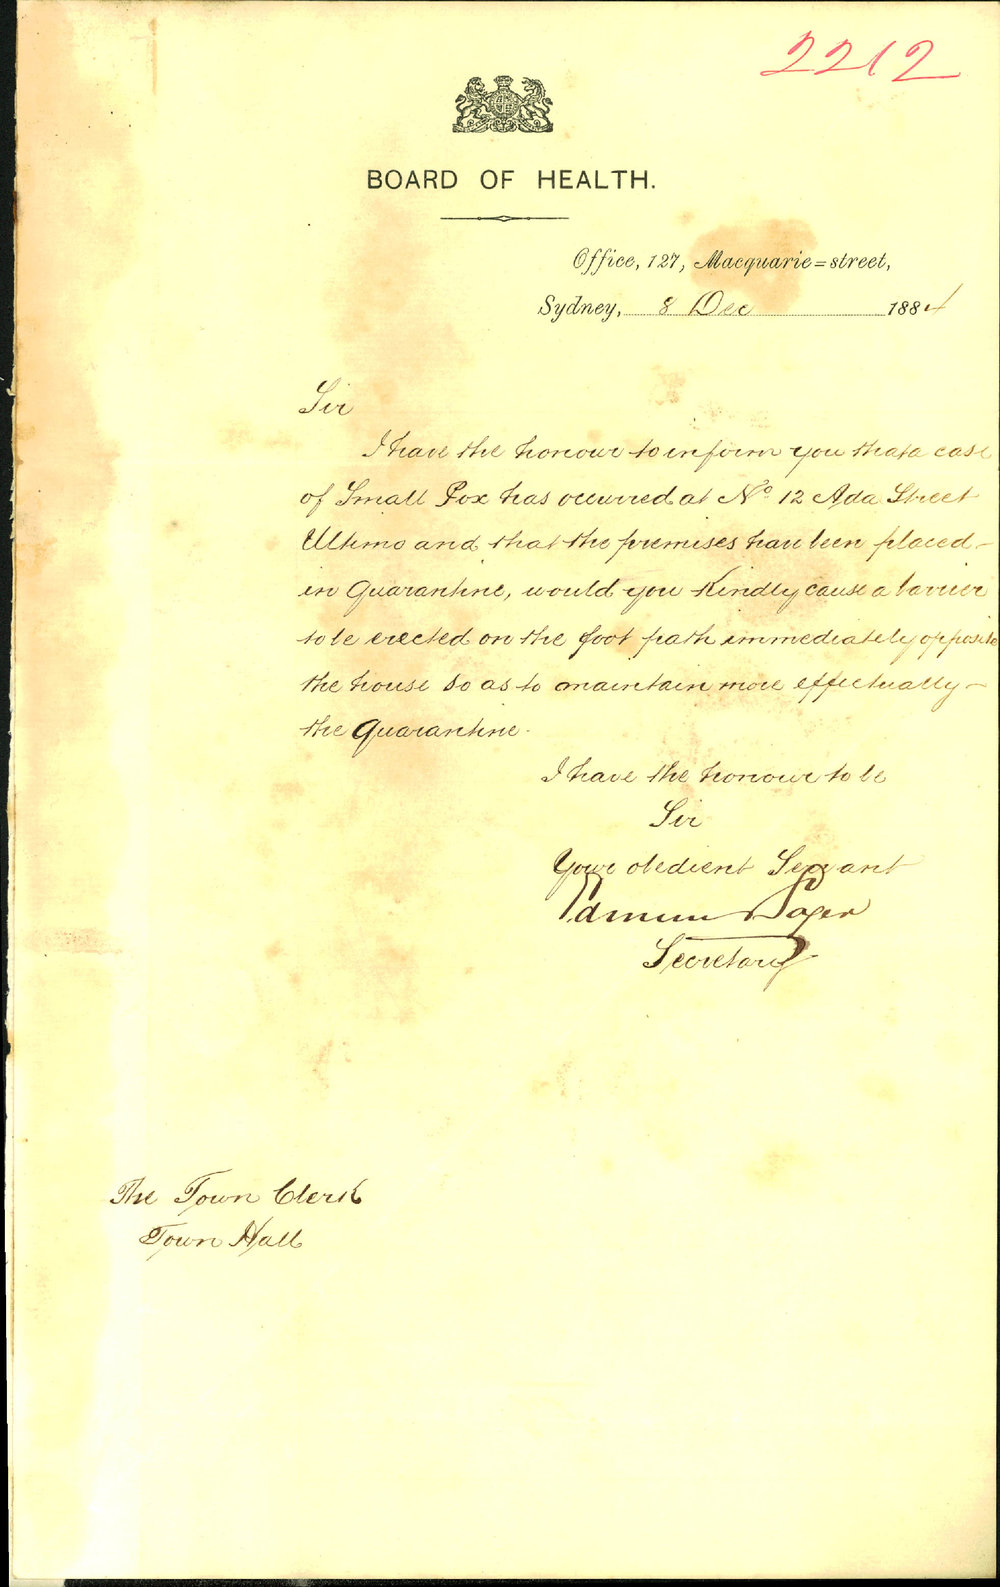 2212
BOARD OF HEALTH.
Office, 127, Macquarie=street,
Sydney, 8 Dec 1884
Sir
I have the honour to inform you that a case
of Small Pox has occurred at No. 12 Ada Street
Ultimo and that the premises have been placed
in Quarantine, would you kindly cause a barrier
to be erected on the foot path immediately opposite
the house so as to maintain more effectually
the Quarantine.
I have the honour to be
Sir
Your obedient Servant
Edmund Sager
Secretary
The Town Clerk
Town Hall